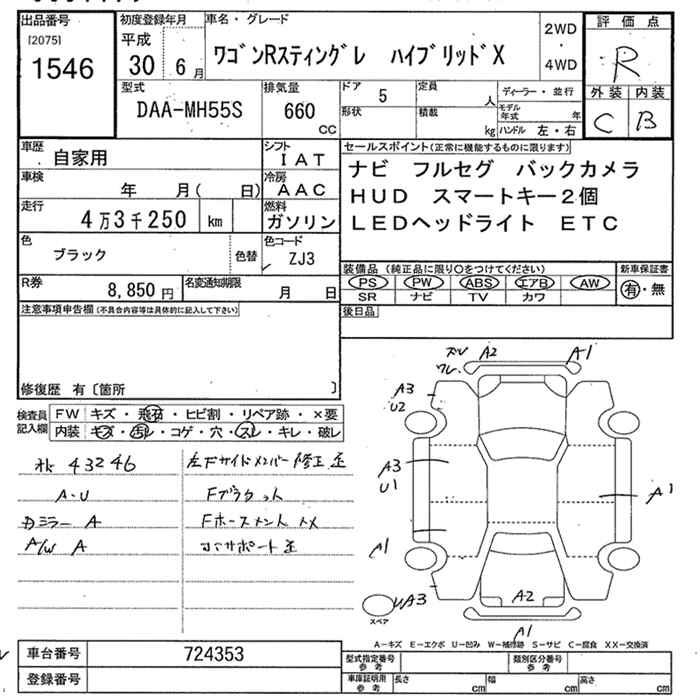 出品番号
[2075]
1546
初度登録年月
平成
30 6月
車名・グレード
ワゴンRスティングレ ハイブリッドX
2WD
・
4WD
評価点
R
外装 内装
C B
型式
DAA-MH55S
排気量
660
CC
ドア 5
形状
定員
人
積載
kg
ディーラー・並行
モデル年式 年
ハンドル 左・右
車歴
自家用
シフト
IAT
車検
年 月( 日)
冷房
AAC
走行
4万3千250 km
燃料
ガソリン
色
ブラック
色替
色コード
ZJ3
R券
8,850円
名変通知期限
月 日
セールスポイント(正常に機能するものに限ります)
ナビ フルセグ バックカメラ
HUD スマートキー2個
LEDヘッドライト ETC
装備品(純正品に限り○をつけてください)
新車保証書
PS PW ABS エアB AW
SR ナビ TV カワ
有・無
後日品
注意事項申告欄(不具合内容等は具体的に記入して下さい)
修復歴 有〔箇所 〕
検査員記入欄
FW キズ・飛石・ヒビ割・リペア跡・×要
内装 キズ・汚レ・コゲ・穴・スレ・キレ・破レ
43246
A・U
ミラー A
A/W A
左Fサイドメンバー修正
Fブラケット
サポート
A2
A1
A3
U2
A3
U1
A1
A1
A3
A2
A1
スペア
A-キズ E-エクボ U-凹み W-補修跡 S-サビ C-腐食 XX-交換済
車台番号
724353
登録番号
型式指定番号
参考
類別区分番号
参考
車庫証明用
参考
長さ cm
幅 cm
高さ cm